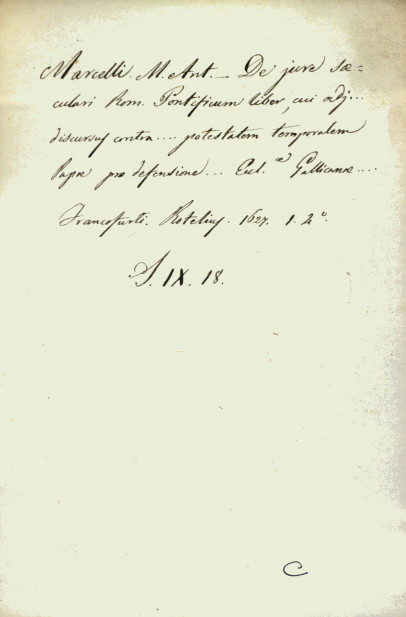 Marcelli. M. Ant. _ De jure sæ=
culari Rom. Pontificum liber, cui adj...
discursus contra.... potestatem temporalem
Papæ pro defensione... Eccl.æ Gallicanæ....
Francofurti. Rotelius. 1627. 1. 4°.
S. IX. 18.
C